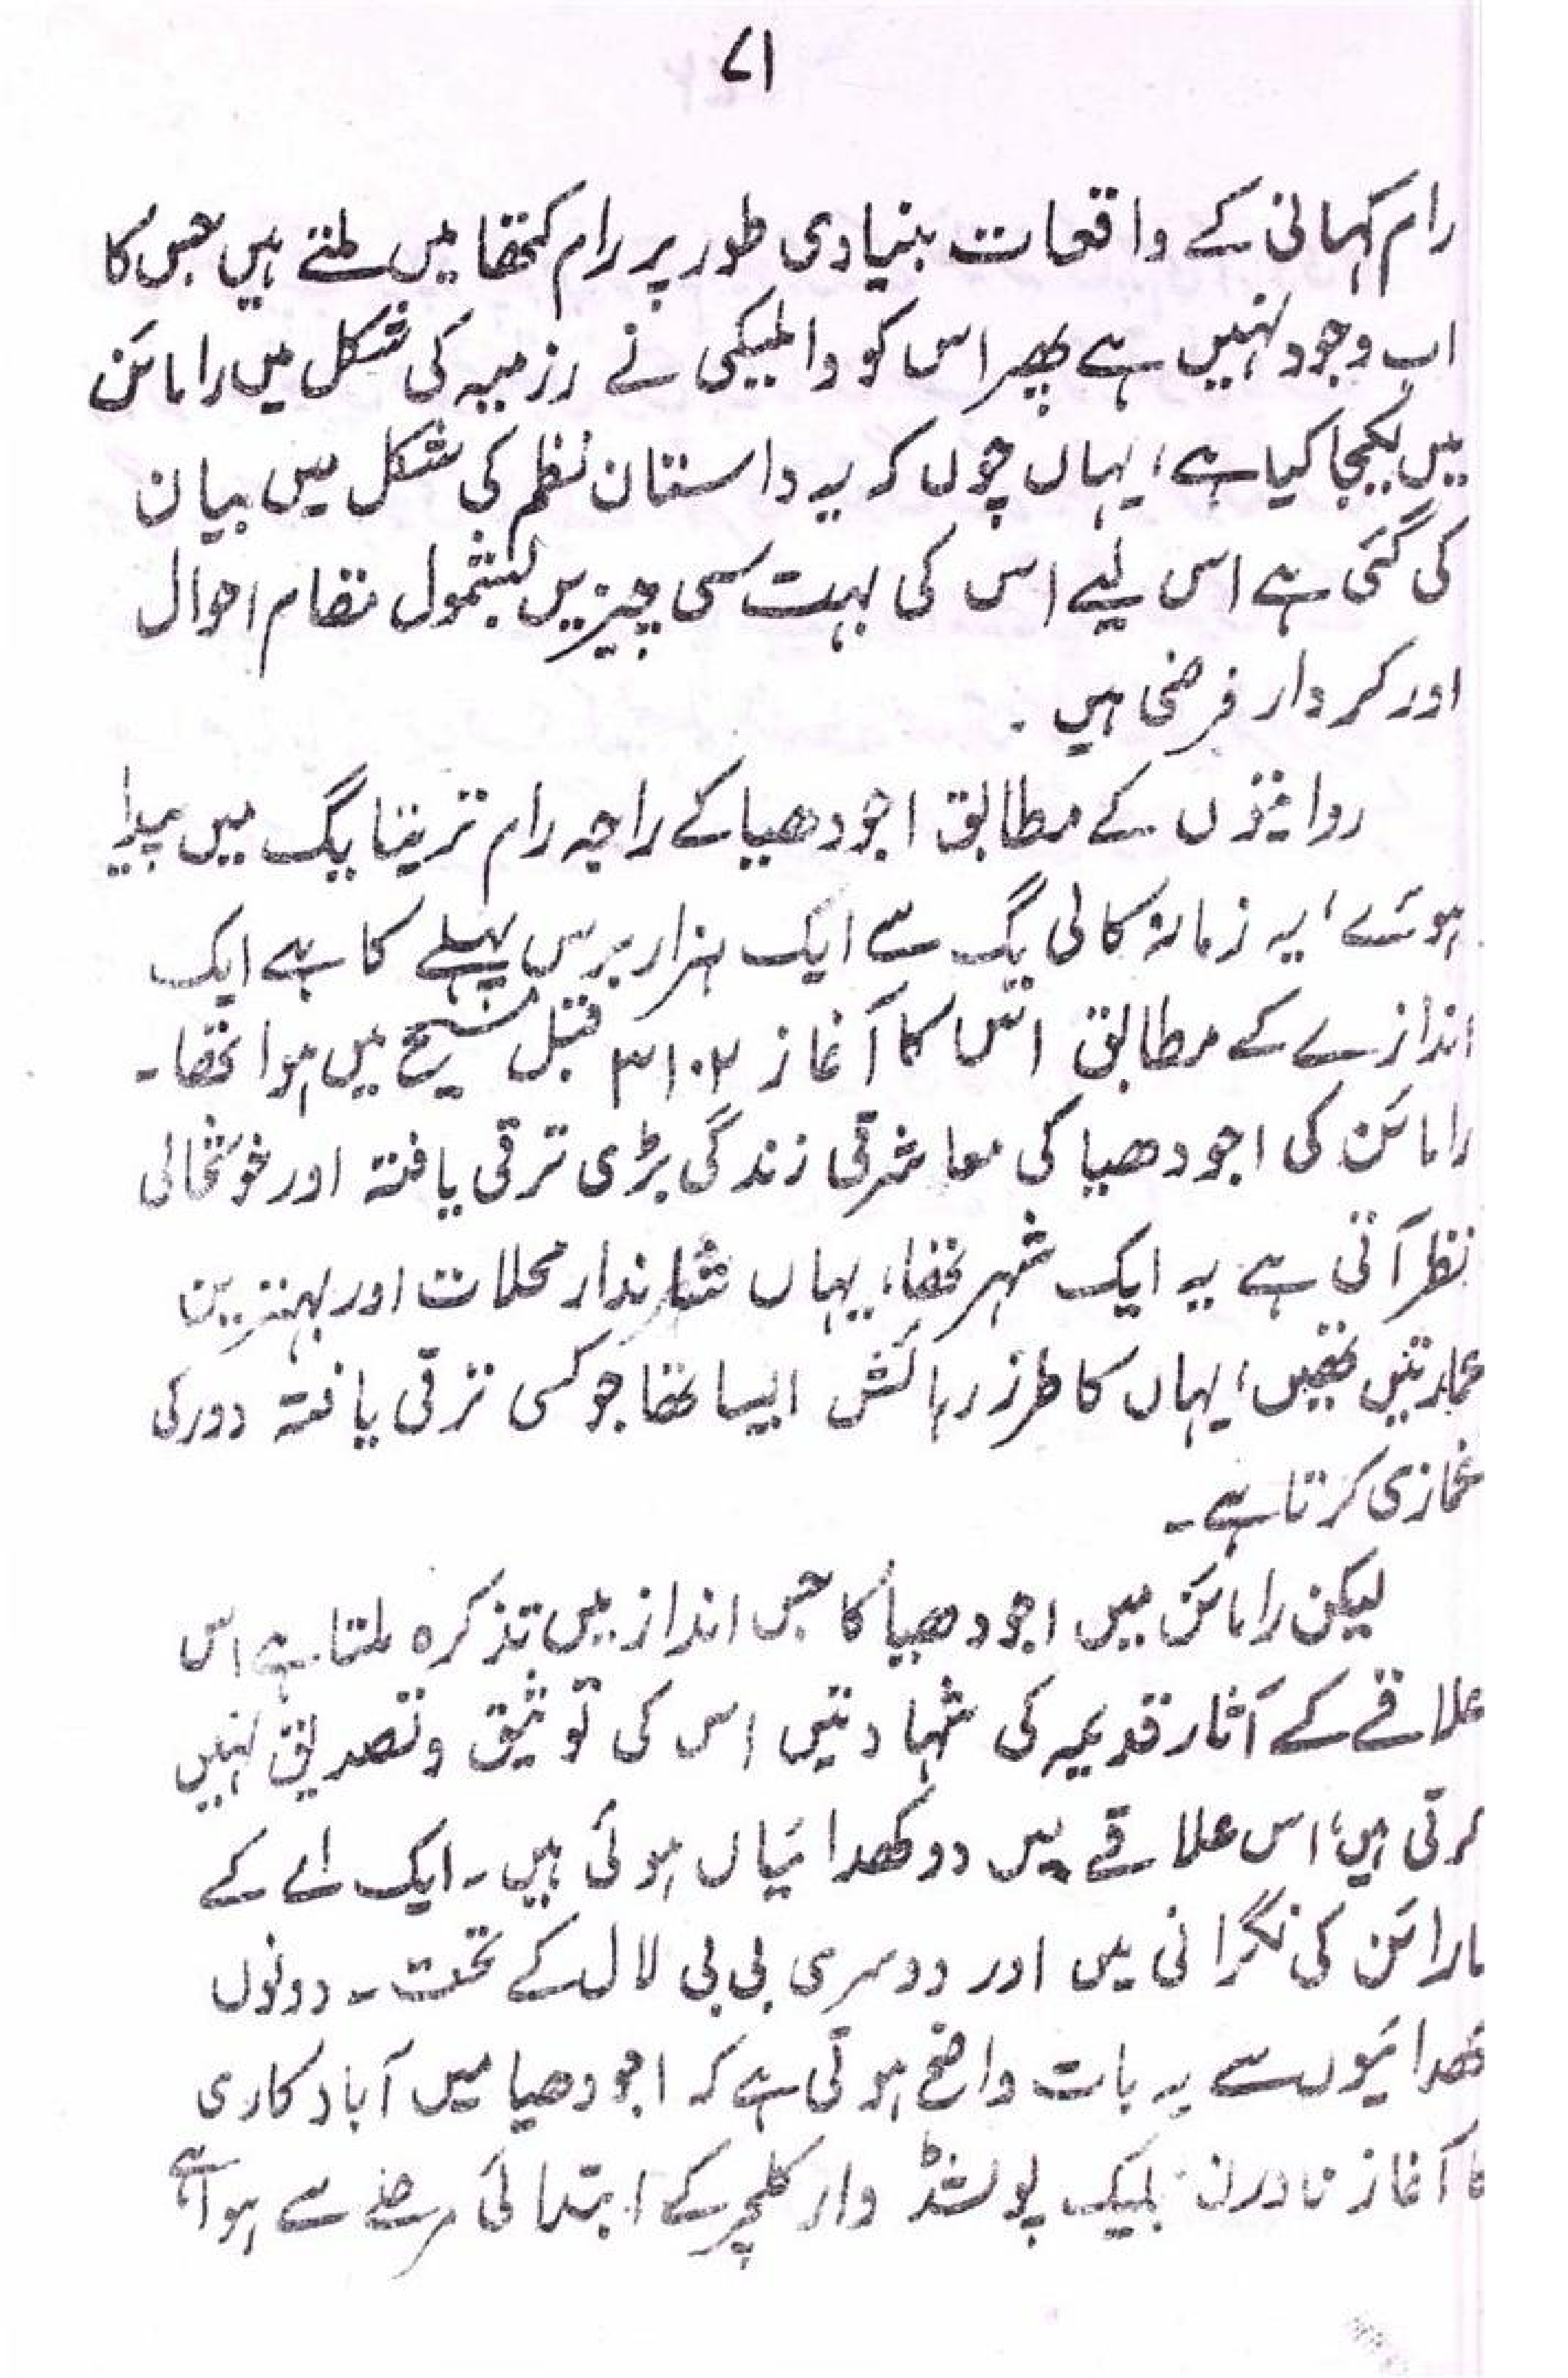 ۷۱
رام کہانی کے واقعات بنیادی طور پر رام کتھا میں ملتے ہیں جس کا
اب وجود نہیں ہے پھر اس کو والمیکی نے رزمیہ کی شکل میں رامائن
میں یکجا کیا ہے، یہاں چوں کہ یہ داستان نظم کی شکل میں بیان
کی گئی ہے اس لیے اس کی بہت سی چیزیں بشمول مقام احوال
اور کردار فرضی ہیں ۔
روایتوں کے مطابق اجودھیا کے راجہ رام تریتا یگ میں پیدا
ہوئے، یہ زمانہ کالی یگ سے ایک ہزار برس پہلے کا ہے ایک
اندازے کے مطابق اس کا آغاز ۳۱۰۲ قبل مسیح میں ہوا تھا۔
رامائن کی اجودھیا کی معاشرتی زندگی بڑی ترقی یافتہ اور خوشحالی
نظر آتی ہے یہ ایک شہر تھا، یہاں شاندار محلات اور بہترین
عمارتیں تھیں، یہاں کا طرز رہائش ایسا تھا جو کسی ترقی یافتہ دور کی
غمازی کرتا ہے۔
لیکن رامائن میں اجودھیا کا جس انداز میں تذکرہ ملتا ہے اس
علاقے کے آثار قدیمہ کی شہادتیں اس کی توثیق و تصدیق نہیں
کرتی ہیں، اس علاقے میں دو کھدائیاں ہوئی ہیں۔ ایک اے کے
نارائن کی نگرانی میں اور دوسری بی بی لال کے تحت۔ دونوں
کھدائیوں سے یہ بات واضح ہوتی ہے کہ اجودھیا میں آباد کاری
کا آغاز نادرن بلیک پولشڈ وار کلچر کے ابتدائی مرحلے سے ہوا ہے